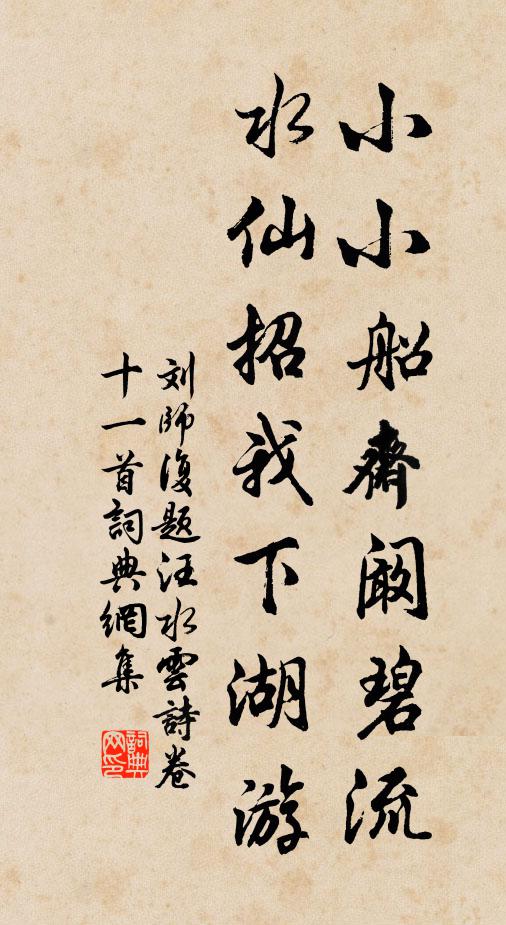 小小船齋阚碧流
水仙招我下湖游
刘師復題汪水雲詩卷
十一首詞典網集
詞典
网印